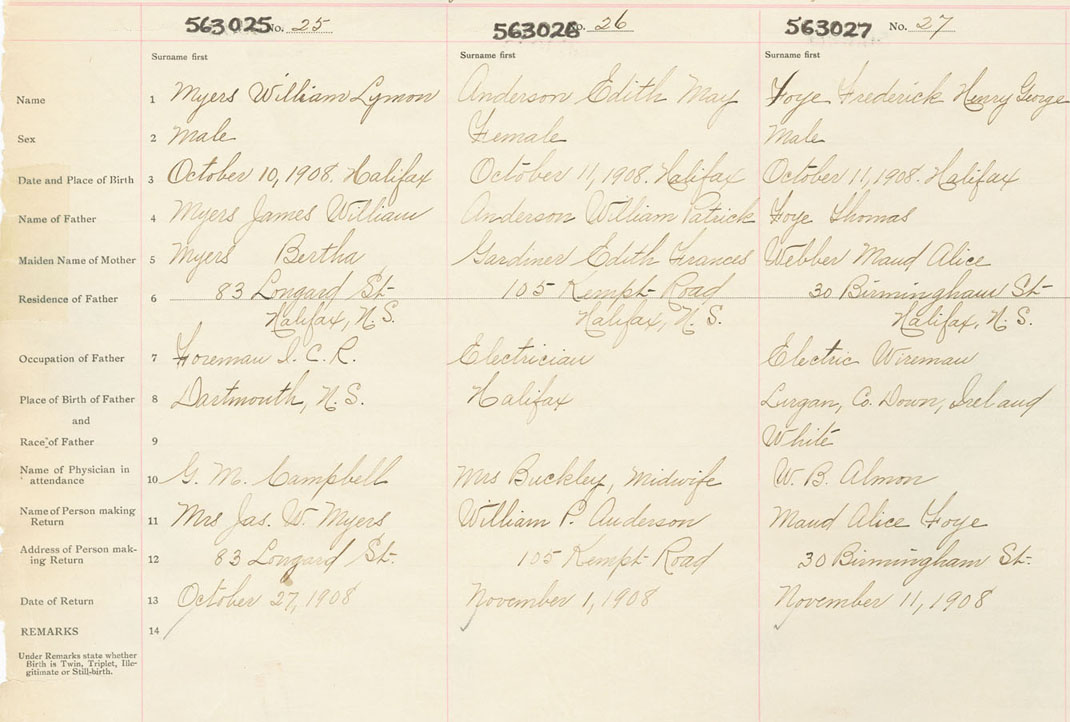 563025 No. 25 563026 No. 26 563027 No. 27
Surname first Surname first Surname first
Name 1 Myers William Lymon Anderson Edith May Foye Frederick Henry George
Sex 2 Male Female Male
Date and Place of Birth 3 October 10, 1908. Halifax October 11, 1908. Halifax October 11, 1908. Halifax
Name of Father 4 Myers James William Anderson William Patrick Foye Thomas
Maiden Name of Mother 5 Myers Bertha Gardiner Edith Frances Webber Maud Alice
Residence of Father 6 83 Longard St- 105 Kempt Road 30 Birmingham St-
Halifax, N.S. Halifax, N.S. Halifax, N.S.
Occupation of Father 7 Foreman I.C.R. Electrician Electric Wireman
Place of Birth of Father 8 Dartmouth, N.S. Halifax Lurgan, Co. Down, Ireland
and
Race of Father 9 White
Name of Physician in
attendance 10 G. M. Campbell Mrs Buckley, Midwife W. B. Almon
Name of Person making
Return 11 Mrs Jas. W. Myers William P. Anderson Maud Alice Foye
Address of Person mak-
ing Return 12 83 Longard St- 105 Kempt Road 30 Birmingham St-
Date of Return 13 October 27, 1908 November 1, 1908 November 11, 1908
REMARKS 14
Under Remarks state whether
Birth is Twin, Triplet, Ille-
gitimate or Still-birth.